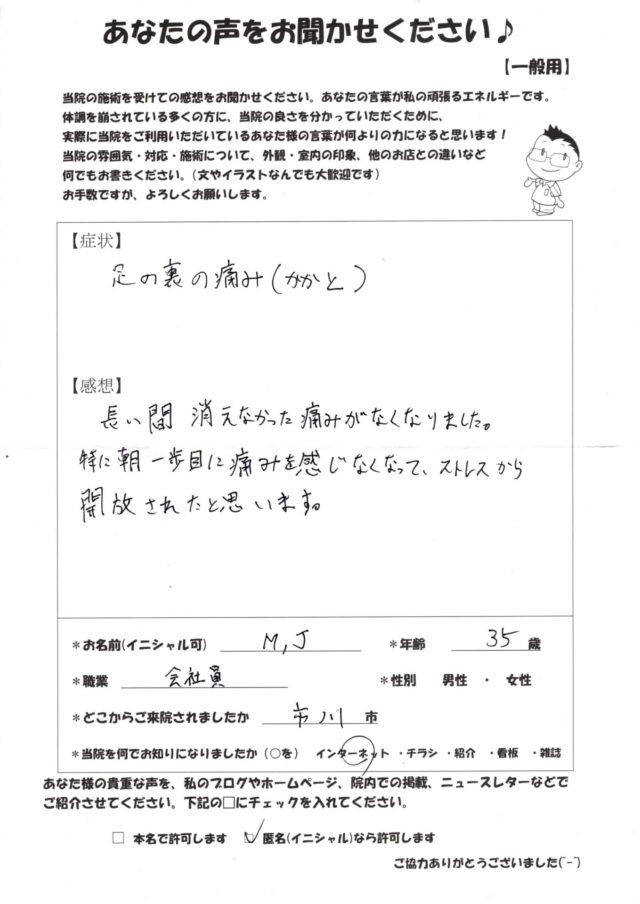 あなたの声をお聞かせください♪
【一般用】
当院の施術を受けての感想をお聞かせください。あなたの言葉が私の頑張るエネルギーです。
体調を崩されている多くの方に、当院の良さを分かっていただくために、
実際に当院をご利用いただいているあなた様の言葉が何よりの力になると思います！
当院の雰囲気・対応・施術について、外観・室内の印象、他のお店との違いなど
何でもお書きください。（文やイラストなんでも大歓迎です）
お手数ですが、よろしくお願いします。
【症状】
足の裏の痛み(かかと)
【感想】
長い間 消えなかった痛みがなくなりました。
特に朝一歩目に痛みを感じなくなって、ストレスから
開放されたと思います。
＊お名前(イニシャル可) M,J ＊年齢 35 歳
＊職業 会社員 ＊性別 男性 ・ 女性
＊どこからご来院されましたか 市川 市
＊当院を何でお知りになりましたか（○を） インターネット ・チラシ ・紹介 ・看板 ・雑誌
あなた様の貴重な声を、私のブログやホームページ、院内での掲載、ニュースレターなどで
ご紹介させてください。下記の□にチェックを入れてください。
□ 本名で許可します ☑ 匿名(イニシャル)なら許可します
ご協力ありがとうございました(^-^)